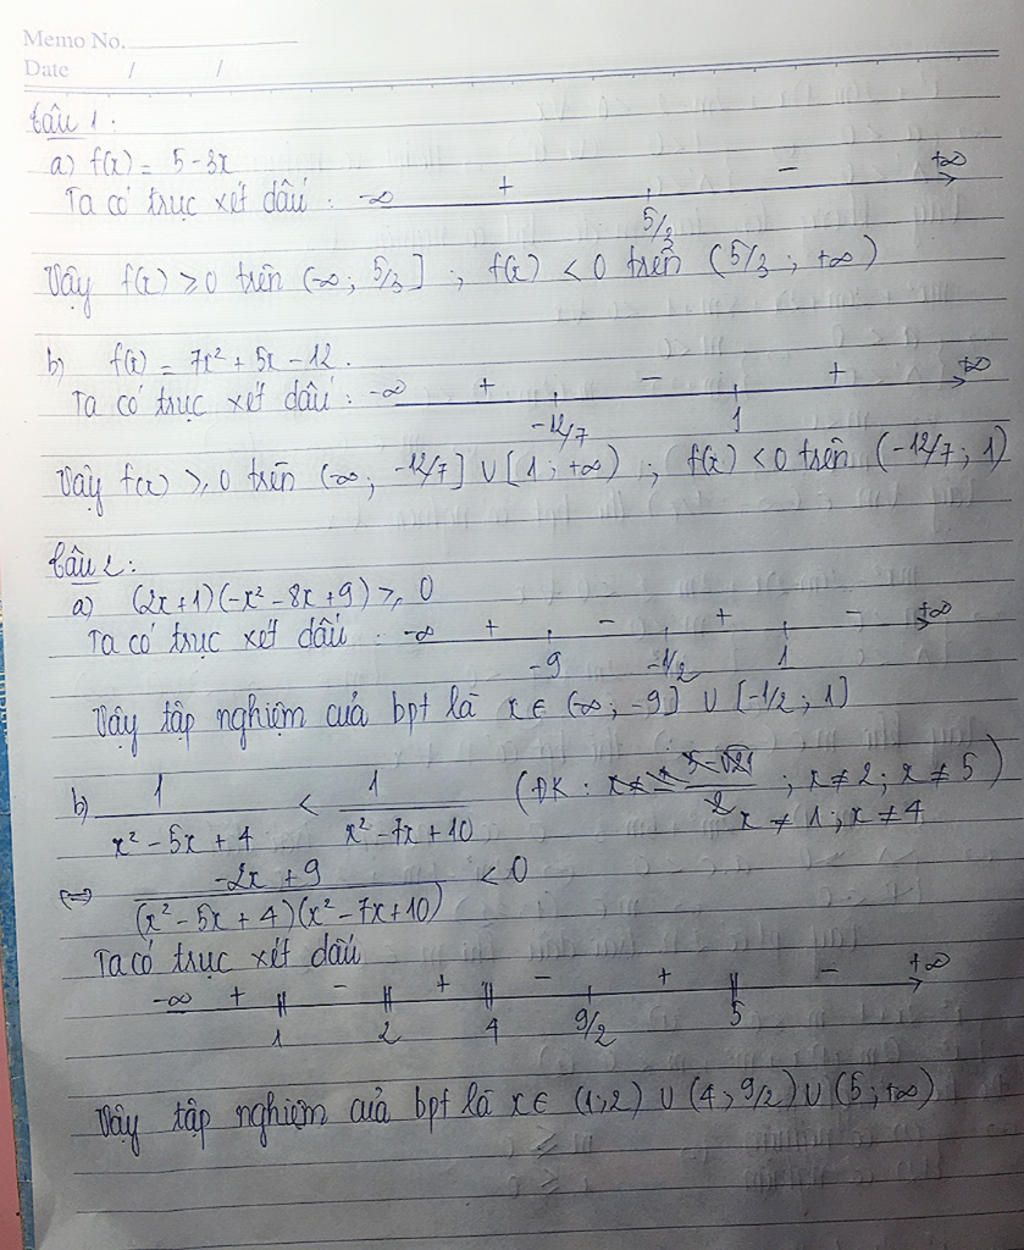 Memo No.
Date / /
Câu 1:
a) f(x) = 5 - 3x
Ta có trục xét dấu : -∞ + 5/3 - +∞
Vậy f(x) ≥ 0 trên (-∞; 5/3] ; f(x) < 0 trên (5/3 ; +∞)
b) f(x) = 7x² + 5x - 12.
Ta có trục xét dấu : -∞ + -12/7 - 1 + +∞
Vậy f(x) ≥ 0 trên (-∞; -12/7] ∪ [1 ; +∞) ; f(x) < 0 trên (-12/7; 1)
Câu 2:
a) (2x+1)(-x² - 8x + 9) ≥ 0
Ta có trục xét dấu : -∞ + -9 - -1/2 + 1 - +∞
Vậy tập nghiệm của bpt là x ∈ (-∞; -9] ∪ [-1/2 ; 1]
b) 1/(x² - 5x + 4) < 1/(x² - 7x + 10) (ĐK : x ≠ 2; x ≠ 5)
x ≠ 1 ; x ≠ 4
⇔ (-2x + 9)/((x² - 5x + 4)(x² - 7x + 10)) < 0
Ta có trục xét dấu
-∞ + 1 - 2 + 4 - 9/2 + 5 - +∞
Vậy tập nghiệm của bpt là x ∈ (1;2) ∪ (4; 9/2) ∪ (5; +∞)